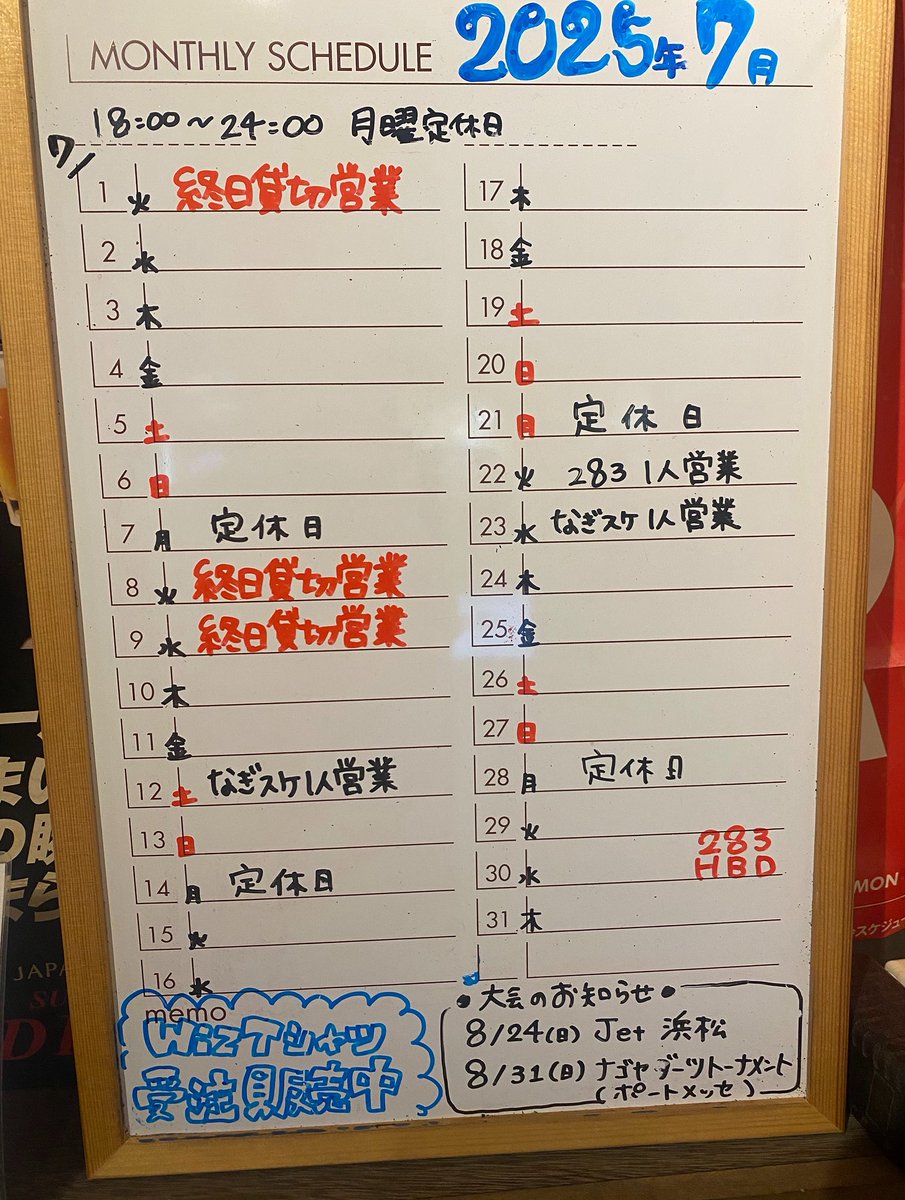 MONTHLY SCHEDULE 2025年7月
18:00~24:00 月曜定休日
7/
1 火 終日貸切営業
2 水
3 木
4 金
5 土
6 日
7 月 定休日
8 火 終日貸切営業
9 水 終日貸切営業
10 木
11 金
12 土 なぎスケ1人営業
13 日
14 月 定休日
15 火
16 水
17 木
18 金
19 土
20 日
21 月 定休日
22 火 283 1人営業
23 水 なぎスケ1人営業
24 木
25 金
26 土
27 日
28 月 定休日
29 火
30 水 283 HBD
31 木
memo
WizTシャツ
受注販売中
•大会のお知らせ•
8/24(日) Jet 浜松
8/31(日) ナゴヤダーツトーナメント
(ポートメッセ)
MON